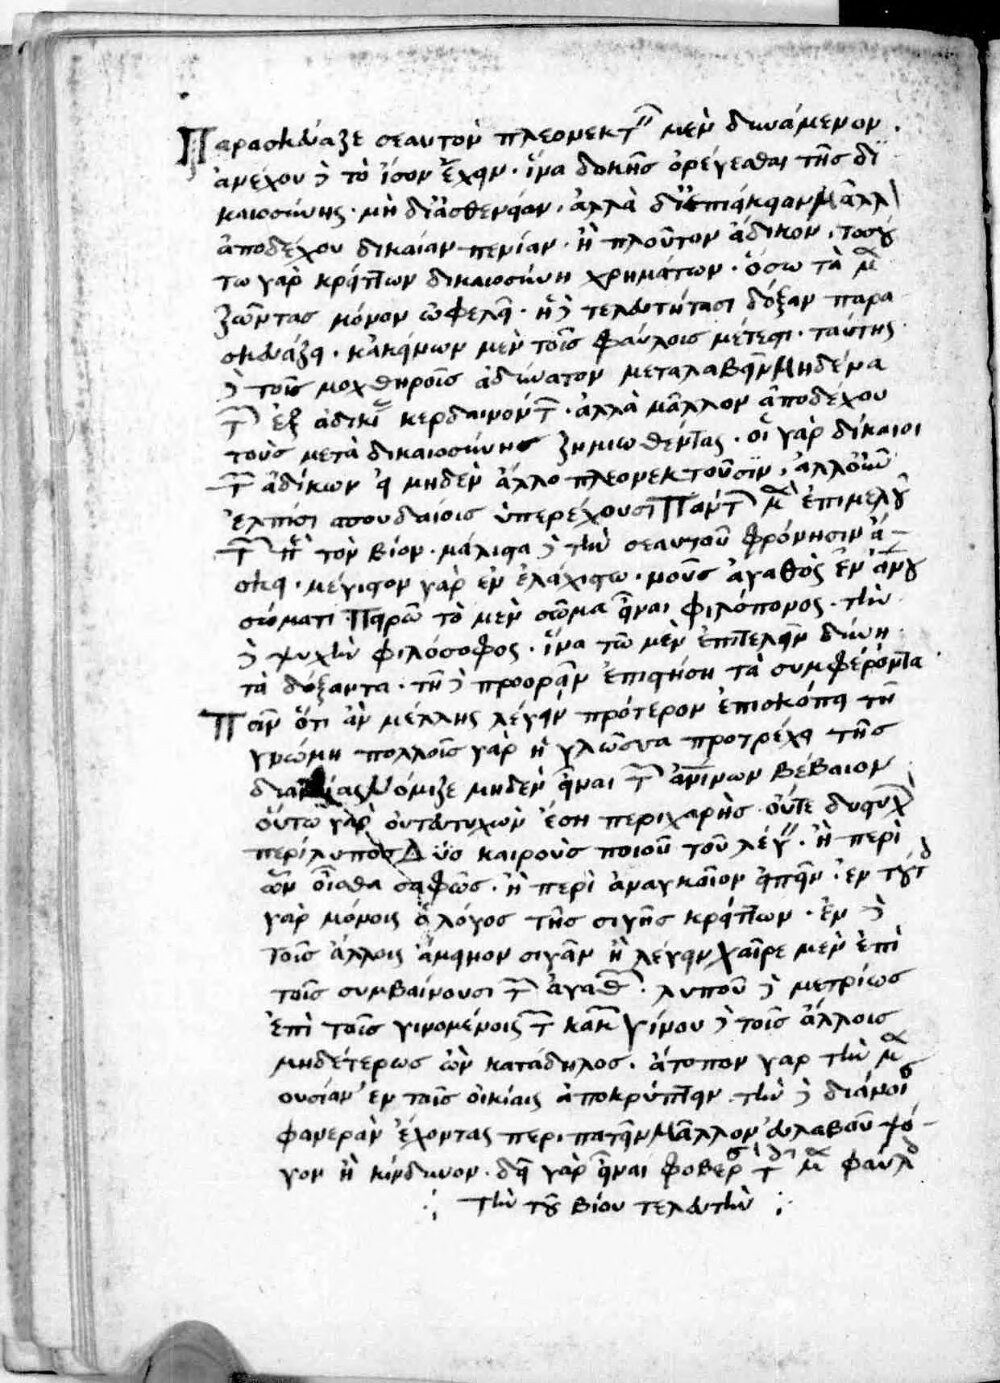 Παρασκεύαζε σεαυτὸν πλεονεκτεῖν μὲν δυνάμενον.
ἀνέχου δὲ τὸ ἴσον ἔχειν· ἵνα δοκῇς ὀρέγεσθαι τῆς δι
καιοσύνης· μὴ δι' ἀσθένειαν, ἀλλὰ δι' ἐπιείκειαν Μᾶλλ
ἀποδέχου δικαίαν πενίαν· ἢ πλοῦτον ἄδικον, τοσού
τω γὰρ κρείττων δικαιοσύνη χρημάτων· ὅσω τὰ μὲν
ζῶντας μόνον ὠφελεῖ· ἡ δὲ τελευτήσασι δόξαν παρα
σκευάζει· κἀκείνων μὲν τοῖς φαύλοις μέτεστι· ταύτης
δὲ τοῖς μοχθηροῖς ἀδύνατον μεταλαβεῖν Μηδένα
τῶν ἐξ ἀδικίας κερδαινόντων· ἀλλὰ μᾶλλον ἀποδέχου
τοὺς μετὰ δικαιοσύνης ζημιωθέντας· οἱ γὰρ δίκαιοι
τῶν ἀδίκων εἰ μηδὲν ἄλλο πλεονεκτοῦσιν, ἀλλ' οὖν
ἐλπίσι σπουδαίοις ὑπερέχουσι Πάντων μὲν ἐπιμελοῦ
τῶν περὶ τὸν βίον· μάλιστα δὲ τὴν σεαυτοῦ φρόνησιν ἄ-
σκει· μέγιστον γὰρ ἐν ἐλαχίστω· νοῦς ἀγαθὸς ἐν ἀνου
σώματι Πειρῶ τὸ μὲν σῶμα εἶναι φιλόπονος· τὴν
δὲ ψυχὴν φιλόσοφος· ἵνα τῶ μὲν ἐπιτελεῖν δύνη
τὰ δόξαντα· τῇ δὲ προορᾶν ἐπιστήση τὰ συμφέροντα
Πᾶν ὅτι ἂν μέλλης λέγειν πρότερον ἐπισκόπει τῇ
γνώμη πολλοῖς γὰρ ἡ γλῶσσα προτρέχει τῆς
διανοίας Νόμιζε μηδὲν εἶναι τῶν ἀνθρωπίνων βέβαιον
οὕτω γὰρ οὔτ' εὐτυχῶν ἔση περιχαρὴς οὔτε δυστυχῶν
περίλυπος Δύο καιροὺς ποιοῦ τοῦ λέγειν· ἢ περὶ
ὧν οἶσθα σαφῶς· ἢ περὶ ἀναγκαῖον εἰπεῖν· ἐν τούτοις
γὰρ μόνοις ὁ λόγος τῆς σιγῆς κρείττων· ἐν δὲ
τοῖς ἄλλοις ἄμεινον σιγᾶν ἢ λέγειν Χαῖρε μὲν ἐπὶ
τοῖς συμβαίνουσι τῶν ἀγαθῶν· λυποῦ δὲ μετρίως
ἐπὶ τοῖς γινομένοις τῶν κακῶν Γίνου δὲ τοῖς ἄλλοις
μηδετέρως ὢν κατάδηλος· ἄτοπον γὰρ τὴν μὲν
οὐσίαν ἐν ταῖς οἰκίαις ἀποκρύπτειν· τὴν δὲ διάνοιαν
φανερὰν ἔχοντας περιπατεῖν Μᾶλλον εὐλαβοῦ ψό-
γον ἢ κίνδυνον· δεῖ γὰρ εἶναι φοβερὰν τοῖς μὲν φαύλοις
τὴν τοῦ βίου τελευτὴν